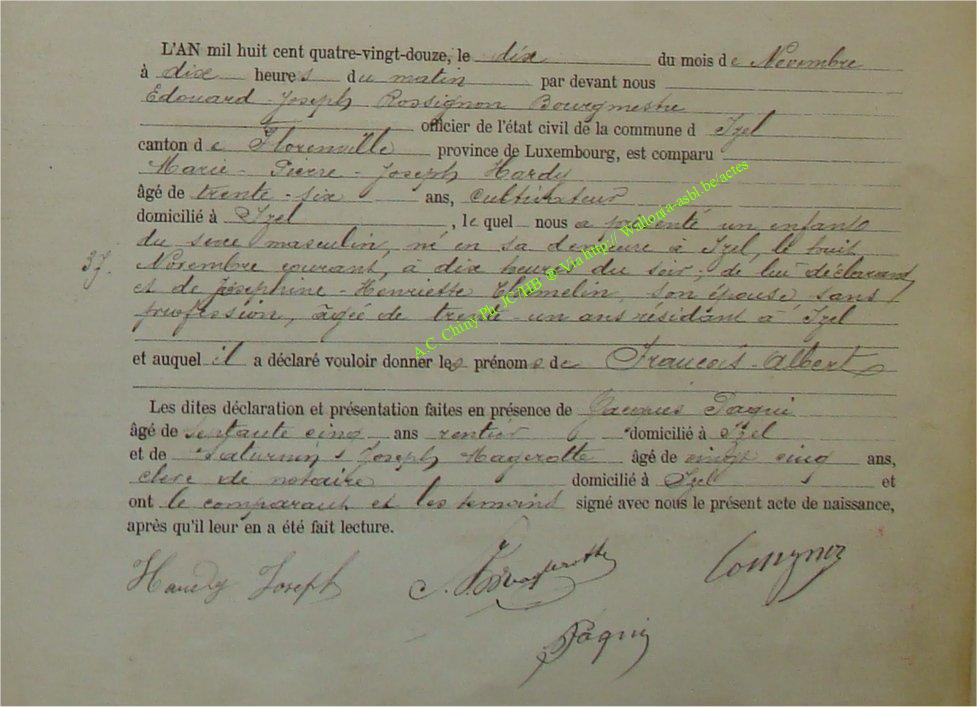 L'AN mil huit cent quatre-vingt-douze, le dix du mois de Novembre
à dix heures du matin par devant nous
Edouard-Joseph Rossignon Bourgmestre
officier de l'état civil de la commune d Izel
canton de Florenville province de Luxembourg, est comparu
Marie-Pierre-Joseph Hardy
âgé de trente-six ans, cultivateur
domicilié à Izel, lequel nous a présenté un enfant
du sexe masculin, né en sa demeure à Izel, le huit
37. Novembre courant, à dix heures du soir, de lui déclarant
et de Joséphine-Henriette son épouse sans
profession, âgée de trente-un ans résidant à Izel
et auquel il a déclaré vouloir donner les prénoms de François-Albert
Les dites déclaration et présentation faites en présence de Jacques Paqui
âgé de septante cinq ans rentier domicilié à Izel
et de Saturnin-Joseph Magerotte âgé de vingt cinq ans,
clerc de notaire domicilié à Izel et
ont le comparant et les temoins signé avec nous le présent acte de naissance,
après qu'il leur en a été fait lecture.
Hardy Joseph
Paqui
A.C. Chiny Ph. JC/HB @ Via http:// Wallonia-asbl.be/actes